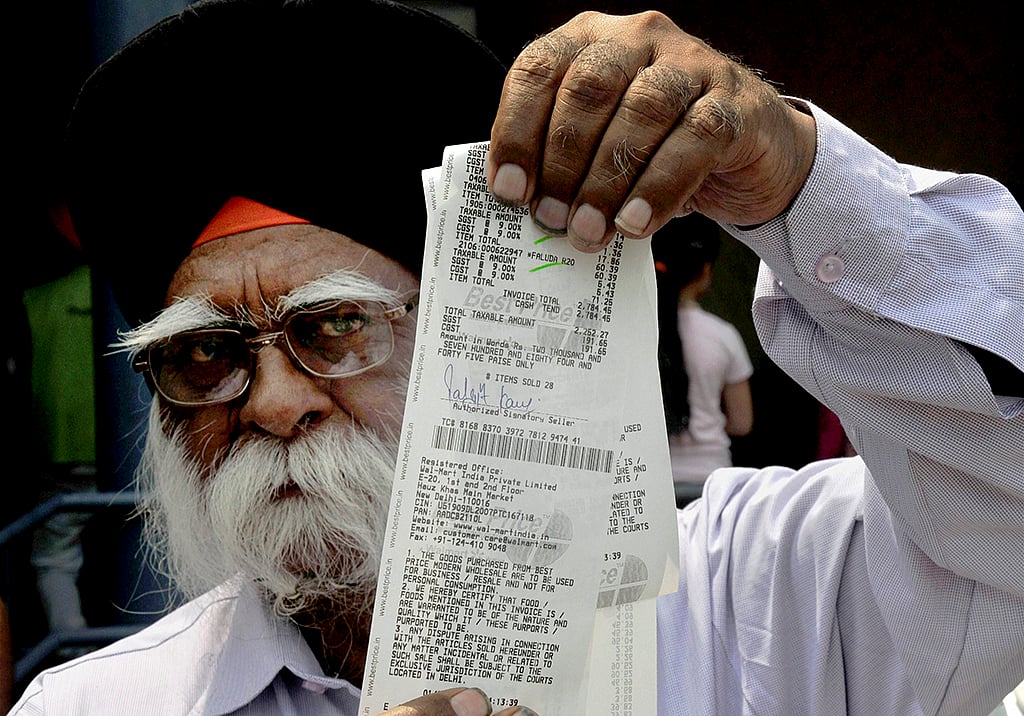 TAXA
SGST
CGST
ITEM
0406
TAXABL
ITEM TO
1905:000274636
TAXABLE AMOUNT
SGST @ 9.00%
CGST @ 9.00%
ITEM TOTAL 17.86
2106:000622947 *FALUDA R20 60.39
TAXABLE AMOUNT 60.39
SGST @ 9.00% 5.43
CGST @ 9.00% 5.43
ITEM TOTAL 71.25
INVOICE TOTAL 2,784.45
CASH TEND 2,784.45
TOTAL TAXABLE AMOUNT 2,252.27
SGST 191.65
CGST 191.65
Amount in Words Rs. TWO THOUSAND AND
SEVEN HUNDRED AND EIGHTY FOUR AND
FORTY FIVE PAISE ONLY
# ITEMS SOLD 28
Authorized Signatory Seller
TC# 8168 8370 3972 7812 9474 41
Registered Office:
Wal-Mart India Private Limited
E-20, 1st and 2nd Floor
Hauz Khas Main Market
New Delhi-110016
CIN: U51909DL2007PTC167118
PAN: AADCB2110L
Website: www.wal-martindia.in
Email: customer.care@walmart.com
Fax: +91-124-410 9048
1. THE GOODS PURCHASED FROM BEST
PRICE MODERN WHOLESALE ARE TO BE USED
FOR BUSINESS / RESALE AND NOT FOR
PERSONAL CONSUMPTION.
2. WE HEREBY CERTIFY THAT FOOD /
FOODS MENTIONED IN THIS INVOICE IS /
ARE WARRANTED TO BE OF THE NATURE AND
QUALITY WHICH IT / THESE PURPORTS /
PURPORTED TO BE.
3. ANY DISPUTE ARISING IN CONNECTION
WITH THE ARTICLES SOLD HEREUNDER OR
ANY MATTER INCIDENTAL OR RELATED TO
SUCH SALE SHALL BE SUBJECT TO THE
EXCLUSIVE JURISDICTION OF THE COURTS
LOCATED IN DELHI.
:13:39
www.bestprice.in
Best Price
USED
IS /
URE AND
RTS /
NNECTION
NDER OR
ATED TO
TO THE
COURTS
3:39
ce